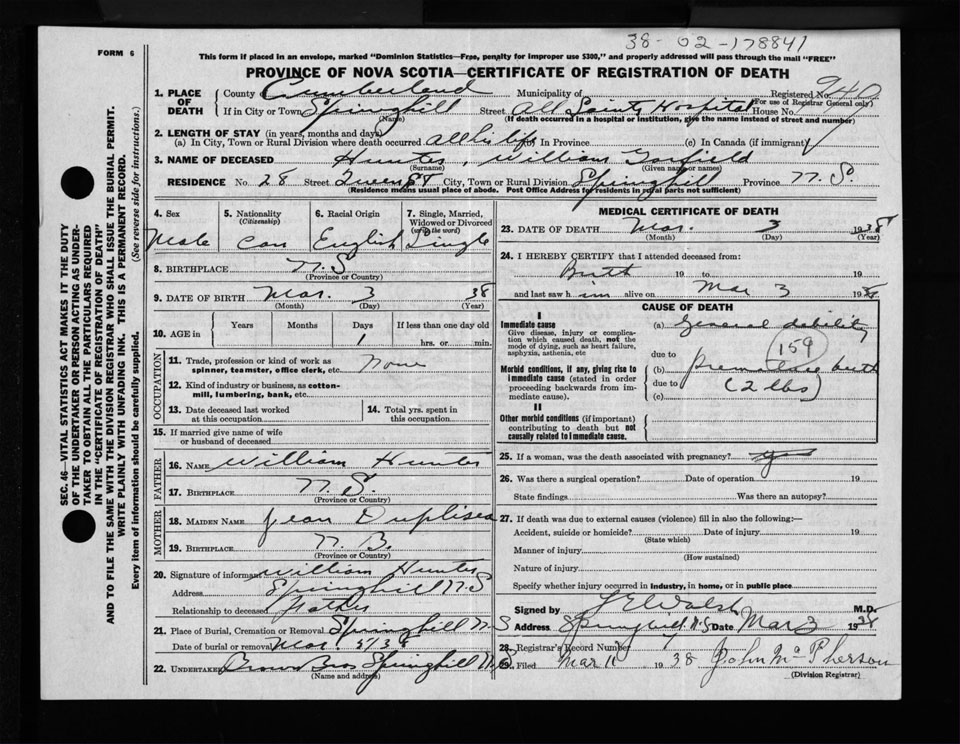 38-02-178841
FORM 6
This form if placed in an envelope, marked "Dominion Statistics—Free, penalty for improper use $300," and properly addressed will pass through the mail "FREE"
PROVINCE OF NOVA SCOTIA—CERTIFICATE OF REGISTRATION OF DEATH
1. PLACE OF DEATH
County Cumberland Municipality of Registered No. 940
(For use of Registrar General only)
If in City or Town Springhill Street All Saints Hospital House No.
(Name) (If death occurred in a hospital or institution, give the name instead of street and number)
2. LENGTH OF STAY (in years, months and days)
(a) In City, Town or Rural Division where death occurred all his life (b) In Province (c) In Canada (if immigrant)
3. NAME OF DECEASED Hunter, William Garfield
(Surname) (Given name or names)
RESIDENCE No. 28 Street Queen St City, Town or Rural Division Springhill Province N.S.
(Residence means usual place of abode. Post Office Address for residents in rural parts not sufficient)
4. Sex
Male
5. Nationality
(Citizenship)
Can
6. Racial Origin
English
7. Single, Married, Widowed or Divorced
(write the word)
Single
8. BIRTHPLACE N.S
(Province or Country)
9. DATE OF BIRTH Mar. 3 38
(Month) (Day) (Year)
10. AGE in
Years Months Days If less than one day old
1 hrs. or min.
OCCUPATION
11. Trade, profession or kind of work as
spinner, teamster, office clerk, etc. none
12. Kind of industry or business, as cotton-
mill, lumbering, bank, etc.
13. Date deceased last worked
at this occupation
14. Total yrs. spent in
this occupation
15. If married give name of wife
or husband of deceased
FATHER
16. NAME William Hunter
17. BIRTHPLACE N.S.
(Province or Country)
MOTHER
18. MAIDEN NAME Jean Duplisea
19. BIRTHPLACE N.B.
(Province or Country)
20. Signature of informant William Hunter
Address Springhill N.S
Relationship to deceased Father
21. Place of Burial, Cremation or Removal Springhill N.S
Date of burial or removal Mar.
22. UNDERTAKER Brown Bros Springhill N.S.
(Name and address)
MEDICAL CERTIFICATE OF DEATH
23. DATE OF DEATH Mar. 3 1938
(Month) (Day) (Year)
24. I HEREBY CERTIFY that I attended deceased from:
Birth 19 to 19
and last saw him alive on Mar 3 1938
CAUSE OF DEATH
I
Immediate cause
Give disease, injury or complica-
tion which caused death, not the
mode of dying, such as heart failure,
asphyxia, asthenia, etc
(a) General debility
due to
159
Morbid conditions, if any, giving rise to
immediate cause (stated in order
proceeding backwards from im-
mediate cause).
(b) premature birth
due to (2 lbs)
(c)
II
Other morbid conditions (if important)
contributing to death but not
causally related to immediate cause.
25. If a woman, was the death associated with pregnancy?
26. Was there a surgical operation? Date of operation 19
State findings Was there an autopsy?
27. If death was due to external causes (violence) fill in also the following:—
Accident, suicide or homicide? Date of injury 19
(State which)
Manner of injury
(How sustained)
Nature of injury
Specify whether injury occurred in industry, in home, or in public place
Signed by J E Walsh M.D.
Address Springhill N.S. Date Mar 3 1938
28. Registrar's Record Number
29. Filed Mar 11 1938 John McPherson
(Division Registrar)
SEC. 46—VITAL STATISTICS ACT MAKES IT THE DUTY
OF THE UNDERTAKER OR PERSON ACTING AS UNDER-
TAKER TO OBTAIN ALL THE PARTICULARS REQUIRED
IN THE "CERTIFICATE OF REGISTRATION OF DEATH"
AND TO FILE THE SAME WITH THE DIVISION REGISTRAR WHO SHALL ISSUE THE BURIAL PERMIT.
WRITE PLAINLY WITH UNFADING INK. THIS IS A PERMANENT RECORD.
Every item of information should be carefully supplied. (See reverse side for instructions.)